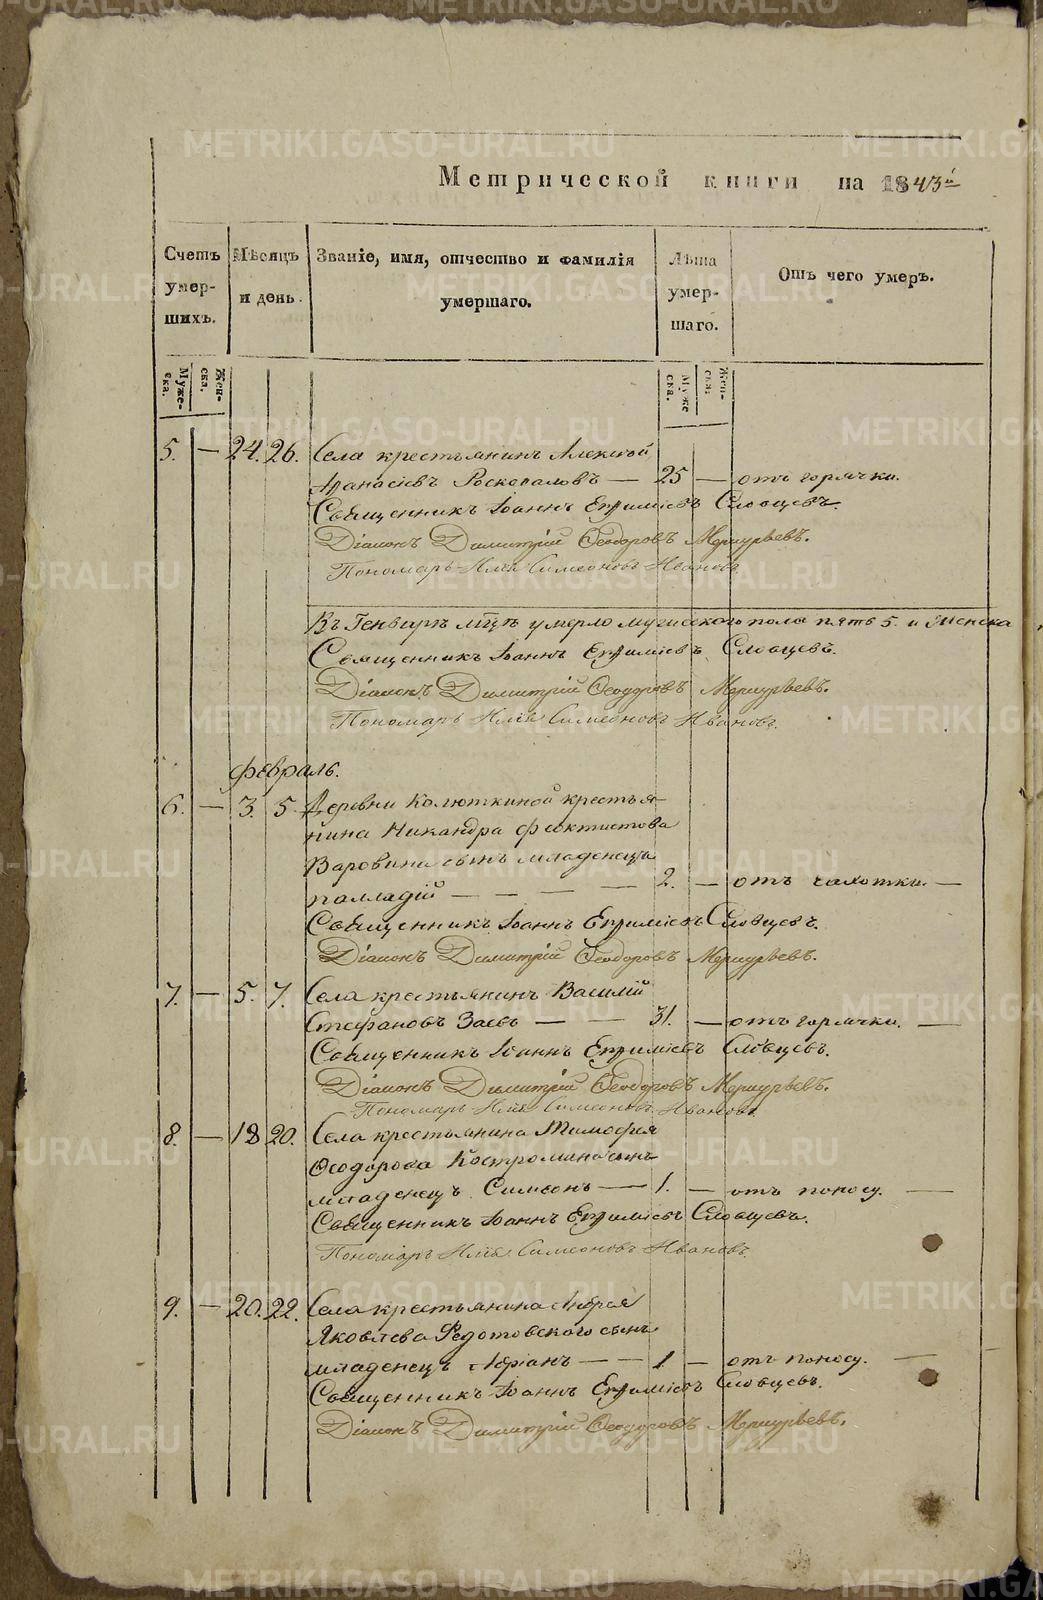 Метрической книги на 1843й
Счетъ умер- шихъ.
Мѣсяцъ и день.
Званіе, имя, отчество и фамилія умершаго.
Лѣта умер- шаго.
Отъ чего умеръ.
Муже- ска.
Жен- ска.
Муже ска.
Жен- ска.
5. — 24. 26. Села крестьянинъ Алексѣй
Аѳанасіевъ Роскопаловъ — 25 — отъ горячки.
Священникъ Іоаннъ Ефиміевъ Словцевъ.
Діаконъ Димитрій Ѳеодоровъ Меркурьевъ.
Пономарь Илья Симеоновъ Ивановъ
Въ Генваръ мцѣ умерло мужескаго пола пять 5. и женска
Священникъ Іоаннъ Ефиміевъ Словцевъ.
Діаконъ Димитрій Ѳеодоровъ Меркурьевъ.
Пономарь Илья Симеоновъ Ивановъ.
Февраль.
6. — 3. 5. Деревни Колюткиной крестья-
нина Никандра Феоктистова
Варовина сынъ младенецъ
палладій — — — — 2. — отъ чахотки. —
Священникъ Іоаннъ Ефиміевъ Словцевъ.
Діаконъ Димитрій Ѳеодоровъ Меркурьевъ.
7. — 5. 7. Села крестьянинъ Василій
Стефановъ Заевъ — — 31. — отъ горячки. —
Священникъ Іоаннъ Ефиміевъ Словцевъ.
Діаконъ Димитрій Ѳеодоровъ Меркурьевъ.
Пономарь Илья Симеоновъ Ивановъ.
8. — 18 20. Села крестьянина Тимофея
Ѳеодорова Костромина сынъ
младенецъ Симеонъ — 1. — отъ поносу. —
Священникъ Іоаннъ Ефиміевъ Словцевъ.
Пономарь Илья Симеоновъ Ивановъ.
9. — 20. 22. Села крестьянина Андрея
Яковлева Федотовского сынъ
младенецъ Адріанъ — — 1 — отъ поносу. —
Священникъ Іоаннъ Ефиміевъ Словцевъ.
Діаконъ Димитрій Ѳеодоровъ Меркурьевъ.
METRIKI.GASO-URAL.RU